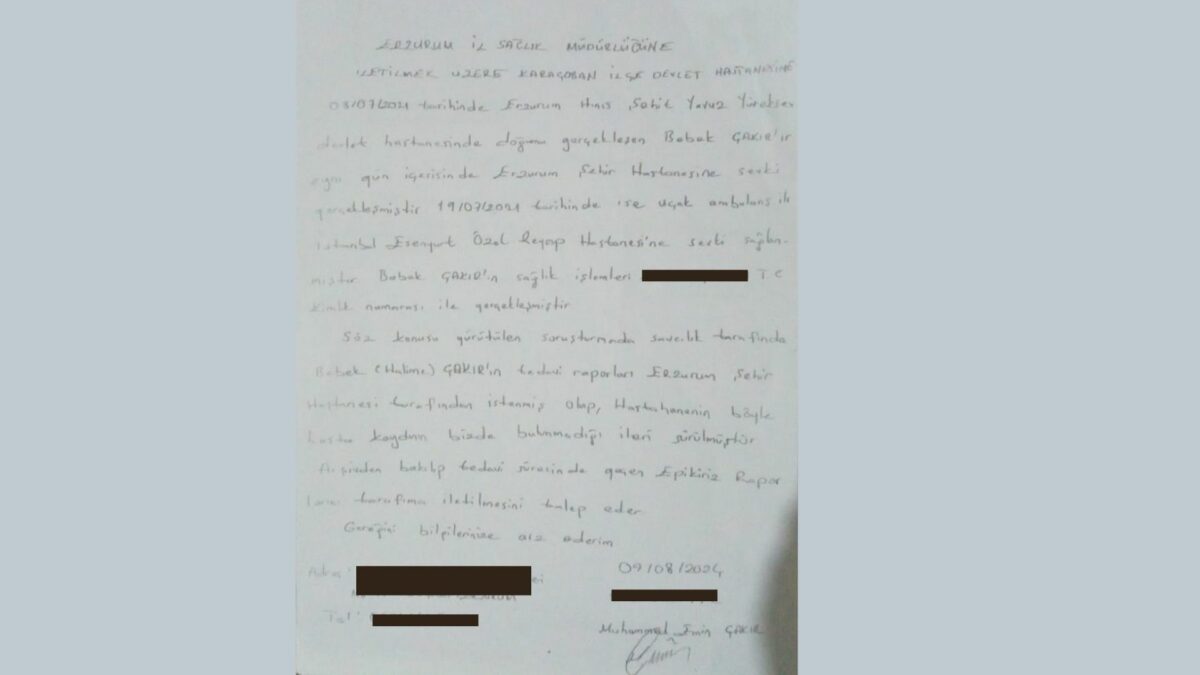 ERZURUM İL SAĞLIK MÜDÜRLÜĞÜNE
İLETİLMEK ÜZERE KARAÇOBAN İLÇE DEVLET HASTANESİNE
08/07/2021 tarihinde Erzurum Hınıs Şehit Yavuz Yürekseven
devlet hastanesinde doğumu gerçekleşen Bebek ÇAKIR'ın
aynı gün içerisinde Erzurum Şehir Hastanesine sevki
gerçekleşmiştir 19/07/2021 tarihinde ise uçak ambulans ile
İstanbul Esenyurt Özel Reyap Hastanesi'ne sevki sağlan-
mıştır Bebek ÇAKIR'ın sağlık işlemleri T C
kimlik numarası ile gerçekleşmiştir
Söz konusu yürütülen soruşturmada savcılık tarafında
Bebek (Halime) ÇAKIR'ın tedavi raporları Erzurum Şehir
Hastanesi tarafından istenmiş olup, Hastahanenin böyle
hasta kaydının bizde bulunmadığı ileri sürülmüştür
Arşivden bakılıp tedavi sürecinde geçen Epikiriz Rapor
ların tarafıma iletilmesini talep eder
Gereğini bilgilerinize arz ederim
Adres:
ERZURUM
Tel:
09/08/2024
Muhammed Emin ÇAKIR